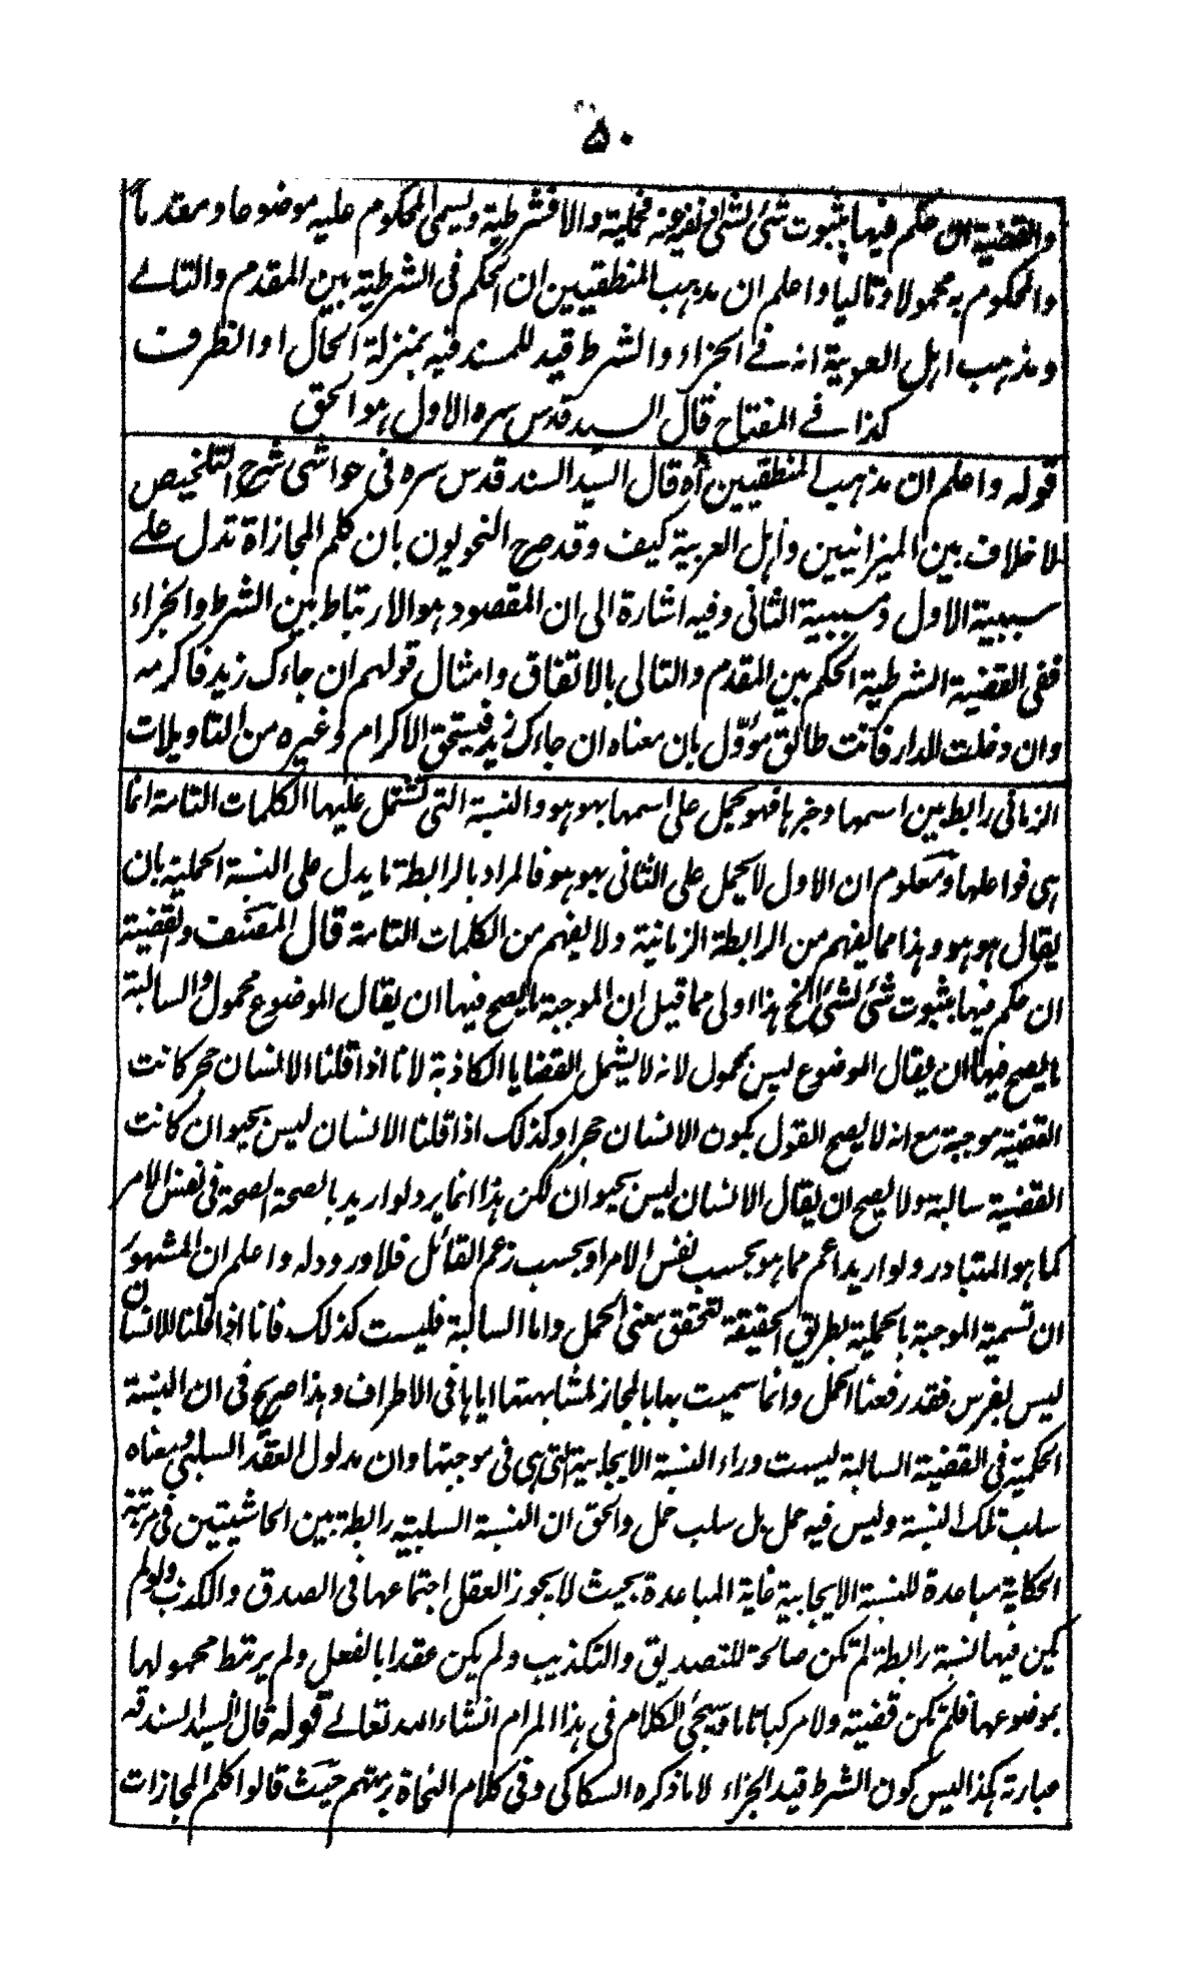 ٥٠
والقضية ان حكم فيها بثبوت شئ لشئ او نفيه عنه فحملية والا فشرطية ويسمى المحكوم عليه موضوعا ومقدما
والمحكوم به محمولا وتاليا واعلم ان مذهب المنطقيين ان الحكم فى الشرطية بين المقدم والتالے
ومذهب اهل العربية انه فے الجزاء والشرط قيد للمسند فيه بمنزلة الحال او الظرف
كذا فے المفتاح قال السيد قدس سره الاول هو الحق
قوله واعلم ان مذهب المنطقيين آه قال السيد السند قدس سره فى حواشى شرح التلخيص
لا خلاف بين الميزانيين واهل العربية كيف وقد صرح النحويون بان كلم المجازاة تدل علے
سببية الاول ومسببية الثانى وفيه اشارة الى ان المقصود هو الارتباط بين الشرط والجزاء
ففى القضية الشرطية الحكم بين المقدم والتالى بالاتفاق وامثال قولهم ان جاءك زيد فاكرمه
وان دخلت الدار فانت طالق مؤوّل بان معناه ان جاءك زيد فيستحق الاكرام وغيره من التاويلات
الزمانى رابط بين اسمها وخبرها فهو يحمل على اسمها بهو هو والنسبة التى تشتمل عليها الكلمات التامة انما
هى فواعلها ومعلوم ان الاول لا يحمل على الثانى بهو هو فالمراد بالرابطة ما يدل على النسبة الحملية بان
يقال هو هو وهذا مما يفهم من الرابطة الزمانية ولا يفهم من الكلمات التامة قال المصنف والقضية
ان حكم فيها بثبوت شئ لشئ الخ هذا اولى مما قيل ان الموجبة ما يصح فيها ان يقال الموضوع محمول والسالبة
ما يصح فيها ان يقال الموضوع ليس بمحمول لانه لا يشمل القضايا الكاذبة لانا اذا قلنا الانسان حجر كانت
القضية موجبة مع انه لا يصح القول بكون الانسان حجرا وكذلك اذا قلنا الانسان ليس بحيوان كانت
القضية سالبة ولا يصح ان يقال الانسان ليس بحيوان لكن هذا انما يرد لو اريد بالصحة الصحة فى نفس الامر
كما هو المتبادر ولو اريد اعم مما هو بحسب نفس الامر او بحسب زعم القائل فلا ورود له واعلم ان المشهور
ان تسمية الموجبة بالحملية بطريق الحقيقة لتحقق معنى الحمل واما السالبة فليست كذلك فانا اذا قلنا الانسان
ليس بفرس فقد رفعنا الحمل وانما سميت بها بالمجاز لمشابهتها اياها فى الاطراف وهذا صريح فى ان النسبة
الحكمية فى القضية السالبة ليست وراء النسبة الايجابية التى هى فى موجبتها وان مدلول العقد السلبى ومعناه
سلب تلك النسبة وليس فيه حمل بل سلب حمل والحق ان النسبة السلبية رابطة بين الحاشيتين فى مرتبة
الحكاية مباعدة للنسبة الايجابية غاية المباعدة بحيث لا يجوز العقل اجتماعهما فى الصدق والكذب ولو لم
يكن فيها نسبة رابطة لم تكن صالحة للتصديق والتكذيب ولم يكن عقدا بالفعل ولم يرتبط محمولها
بموضوعها فلم تكن قضية ولا مركبا تاما وسيجئ الكلام فى هذا المرام انشاء الله تعالے قوله قال السيد السند قه
عبارته هكذا ليس كون الشرط قيد الجزاء لا ما ذكره السكاكى وفى كلام النحاة برمتهم حيث قالوا كلم المجازات